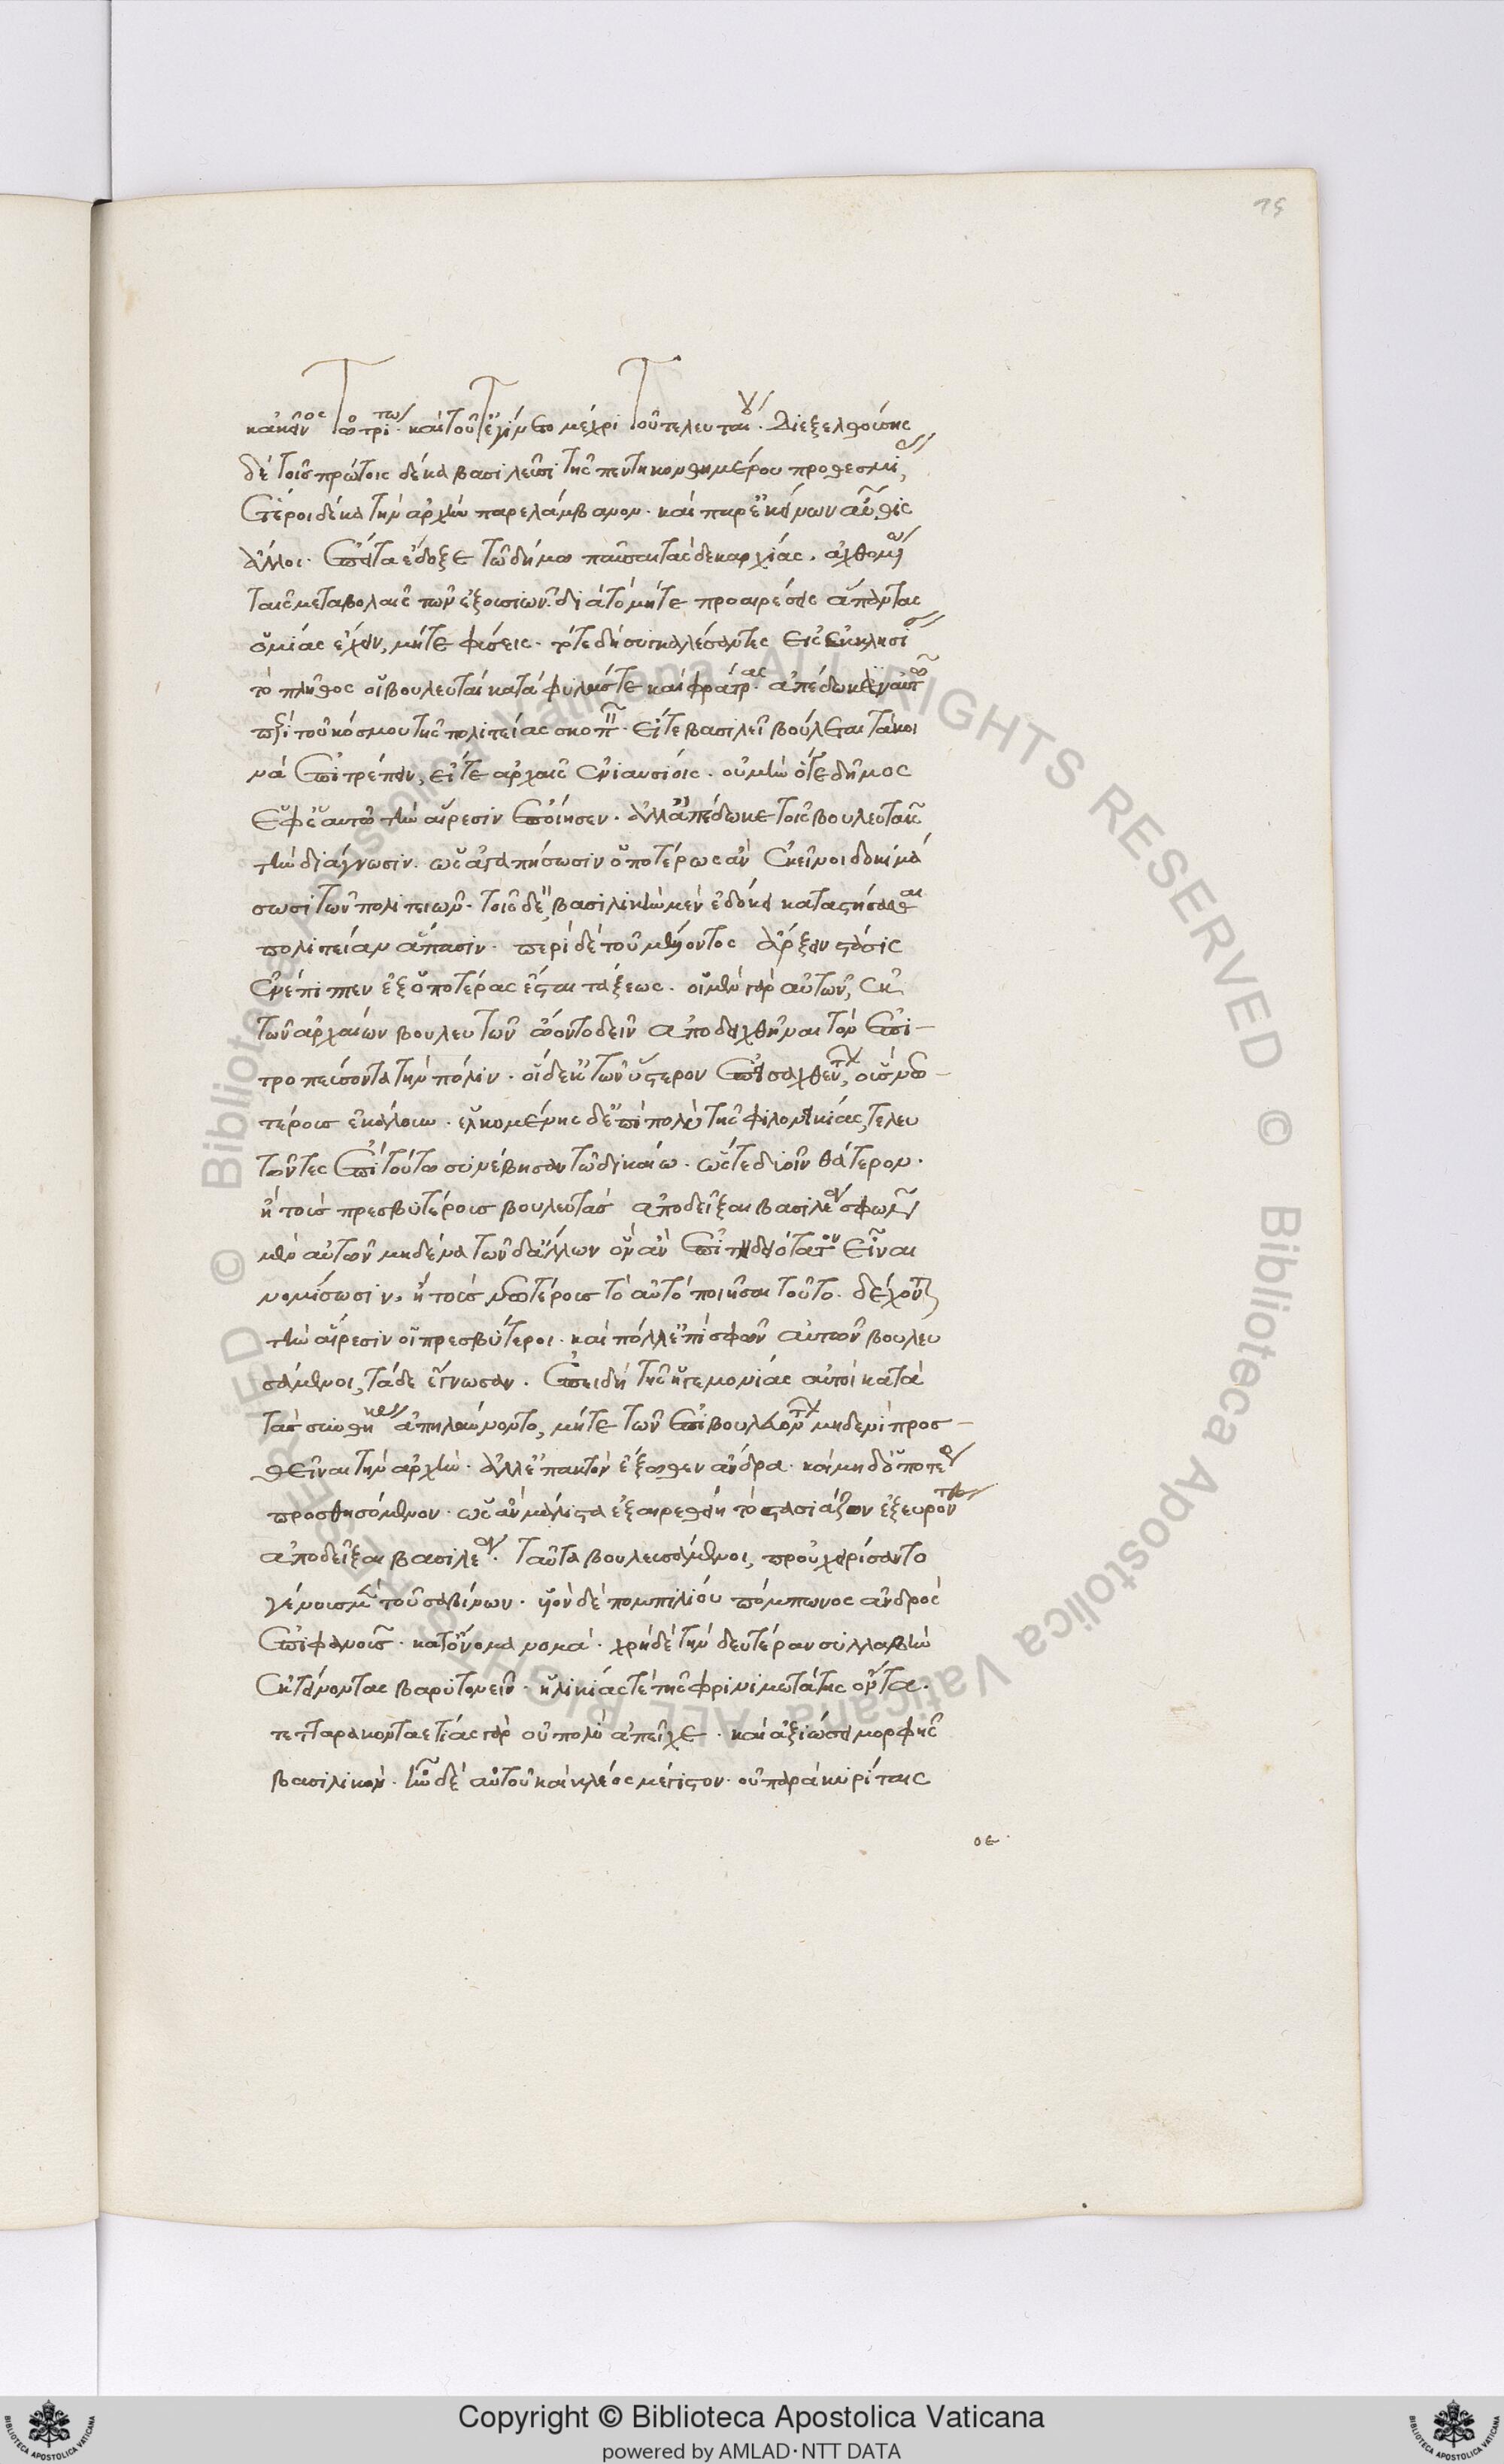 15
κἀκεῖνος τῷ τρίτω· καὶ τοῦτ' ἐγίνετο μέχρι τοῦ τελευταίου. Διεξελθούσης
δὲ τοῖς πρώτοις δέκα βασιλεῦσι τῆς πεντηκονθημέρου προθεσμίας,
ἕτεροι δέκα τὴν ἀρχὴν παρελάμβανον· καὶ παρ' ἐκείνων αὖθις
ἄλλοι. ἔπειτα ἔδοξε τῶ δήμω παῦσαι τὰς δεκαρχίας. ἀχθομένω
ταῖς μεταβολαῖς τῶν ἐξουσιῶν. διὰ τὸ μήτε προαιρέσεις ἅπαντας
ὁμίας ἔχειν, μήτε φύσεις· τότε δὴ συγκαλέσαντες εἰς ἐκκλησίαν
τὸ πλῆθος οἱ βουλευταὶ κατὰ φυλάς τε καὶ φράτρας· ἀπέδωκεν αὐτῶ
περὶ τοῦ κόσμου τῆς πολιτείας σκοπεῖν· εἴτε βασιλεῖ βούλεται τὰ κοι
νὰ ἐπιτρέπειν, εἴτε ἀρχαῖς ἐνιαυσίοις. οὐ μὴν ὅτε δῆμος
ἐφ' ἑαυτῶ τὴν αἵρεσιν ἐποίησεν. ἀλλ' ἀπέδωκε τοῖς βουλευταῖς
τὴν διάγνωσιν. ὡς ἀγαπήσωσιν ὁποτέρως ἂν ἐκεῖνοι δοκιμά
σωσι τῶν πολιτειῶν. τοῖς δὲ βασιλικὴν μὲν ἐδόκει καταστήσασθαι
πολιτείαν ἅπασιν. περὶ δὲ τοῦ μέλλοντος ἄρξειν στάσις
ἐνέπιπτεν ἐξ ὁποτέρας ἔσται τάξεως. οἱ μὲν γὰρ αὐτῶν, ἐκ
τῶν ἀρχαίων βουλευτῶν ᾤοντο δεῖν ἀποδειχθῆναι τὸν ἐπι-
τροπεύσοντα τὴν πόλιν. οἱ δ' ἐκ τῶν ὕστερον ἐπεισαχθέντων, οὓς νεω-
τέρους ἐκάλουν. ἑλκομένης δ' ἐπιπολὺ τῆς φιλονεικίας, τελευ
τῶντες ἐπὶ τούτω συνέβησαν τῶ δικαίω. ὥστε δυοῖν θάτερον.
ἢ τοὺς πρεσβυτέρους βουλευτὰς ἀποδεῖξαι βασιλέα σφῶν
μὲν αὐτῶν μηδένα τῶν δ' ἄλλων ὃν ἂν ἐπιτηδειότατον εἶναι
νομίσωσιν, ἢ τοὺς νεωτέρους τὸ αὐτὸ ποιῆσαι τοῦτο. δέχονται
τὴν αἵρεσιν οἱ πρεσβύτεροι. καὶ πόλλ' ἐπὶ σφῶν αὐτῶν βουλευ
σάμενοι, τάδε ἔγνωσαν. ἐπειδὴ τῆς ἡγεμονίας αὐτοὶ κατὰ
τὰς συνθήκας ἀπηλαύνοντο, μήτε τῶν ἐπιβουλευόντων μηδενὶ προσ-
θεῖναι τὴν ἀρχὴν. ἀλλ' ἐπακτὸν ἔξωθεν ἄνδρα. καὶ μηδ' ὁποτέροις
προσθησόμενον. ὡς ἂν μάλιστα ἐξαιρεθείη τὸ στασιάζον ἐξευρόντας
ἀποδεῖξαι βασιλέα. ταῦτα βουλευσάμενοι, προὐχειρίσαντο
γένους μὲν τοῦ σαβίνων. υἱὸν δὲ πομπιλίου πόμπωνος ἀνδρὸς
ἐπιφανοῦς. κατ' ὄνομα νομά. χρὴ δὲ τὴν δευτέραν συλλαβὴν
ἐκτείνοντας βαρυτονεῖν. ἡλικίας τε τῆς φρονιμωτάτης ὄντα.
τετταρακονταετίας γὰρ οὐ πολὺ ἀπεῖχε. καὶ ἀξιώσει μορφῆς
βασιλικόν. ἦν δὲ αὐτοῦ καὶ κλέος μέγιστον. οὐ παρὰ κυρίταις
οε